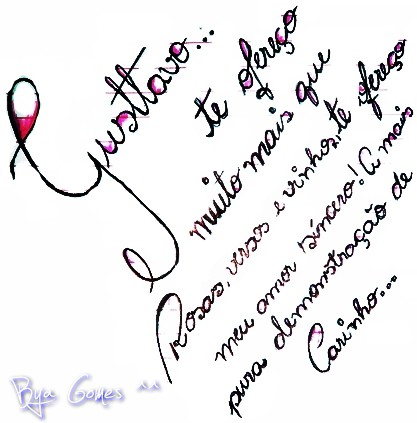 Gusttavo...
te ofereço
muito mais que
Rosas, versos e vinhos, te ofereço
meu amor sincero! A mais
pura demonstração de
Carinho...
Rya Gomes ^^